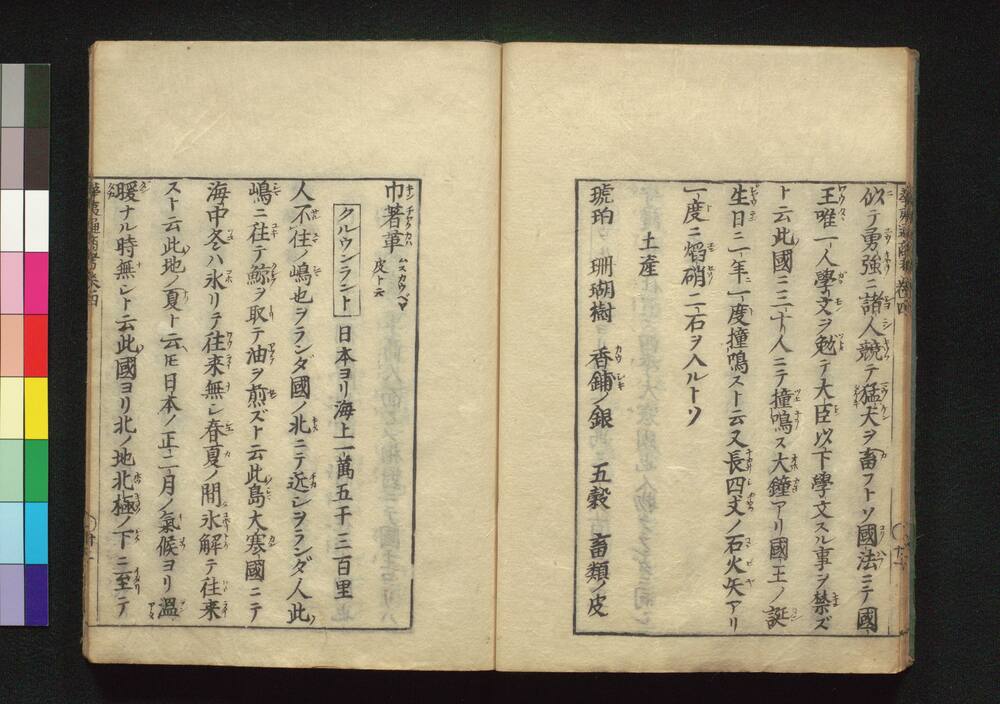 似テ勇強ニ諸人競テ猛犬ヲ畜フトソ國法ニテ國
王唯一人學文ヲ勉テ大臣以下學文スル事ヲ禁ズ
ト云此國ニ三十人ニテ撞鳴ス大鐘アリ國王ノ誕
生日ニ一年一度撞鳴スト云又長四丈ノ石火矢アリ
一度ニ焰硝二石ヲ入ルトソ
土産
琥珀 珊瑚樹 香鋪ノ銀 五穀 畜類ノ皮
巾著革 ムスカウベヤ皮ト云
グルウンラント 日本ヨリ海上一萬五千三百里
人不住ノ嶋也ヲランダ國ノ北ニテ近シヲランダ人此
嶋ニ往テ鯨ヲ取テ油ヲ煎ズト云此島大寒國ニテ
海中冬ハ氷リテ往来無シ春夏ノ間氷解テ往来
スト云此地ノ夏ト云ヒ日本ノ正二月ノ氣候ヨリ温
暖ナル時無シト云此國ヨリ北ノ地北極ノ下ニ至ニテ